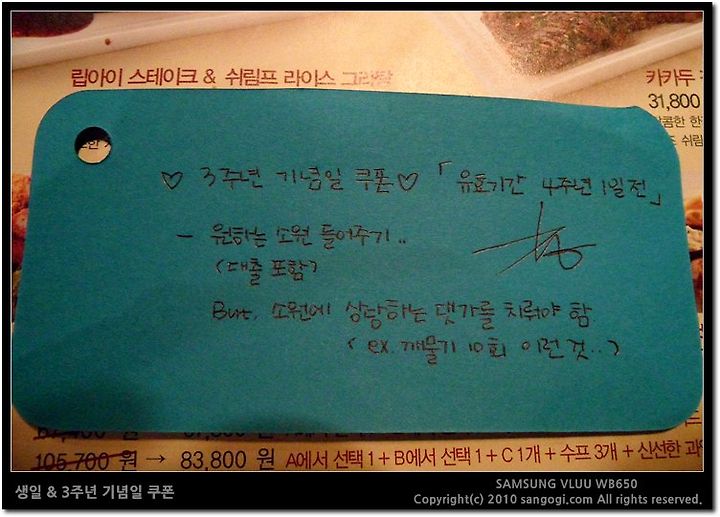 립아이 스테이크 & 쉬림프 라이스 그라탕
카카두
31,800
콤한 한
쉬림
♡ 3주년 기념일 쿠폰♡ 「유효기간 4주년 1일전」
- 원하는 소원 들어주기..
(대출 포함)
But, 소원에 상당하는 댓가를 치뤄야 함.
( ex. 깨물기 10회 이런것..)
105,700 원 → 83,800 원 A에서 선택 1 + B에서 선택 1 + C 1개 + 수프 3개 + 신선한 과
생일 & 3주년 기념일 쿠폰
SAMSUNG VLUU WB650
Copyright(c) 2010 sangogi.com All rights reserved.